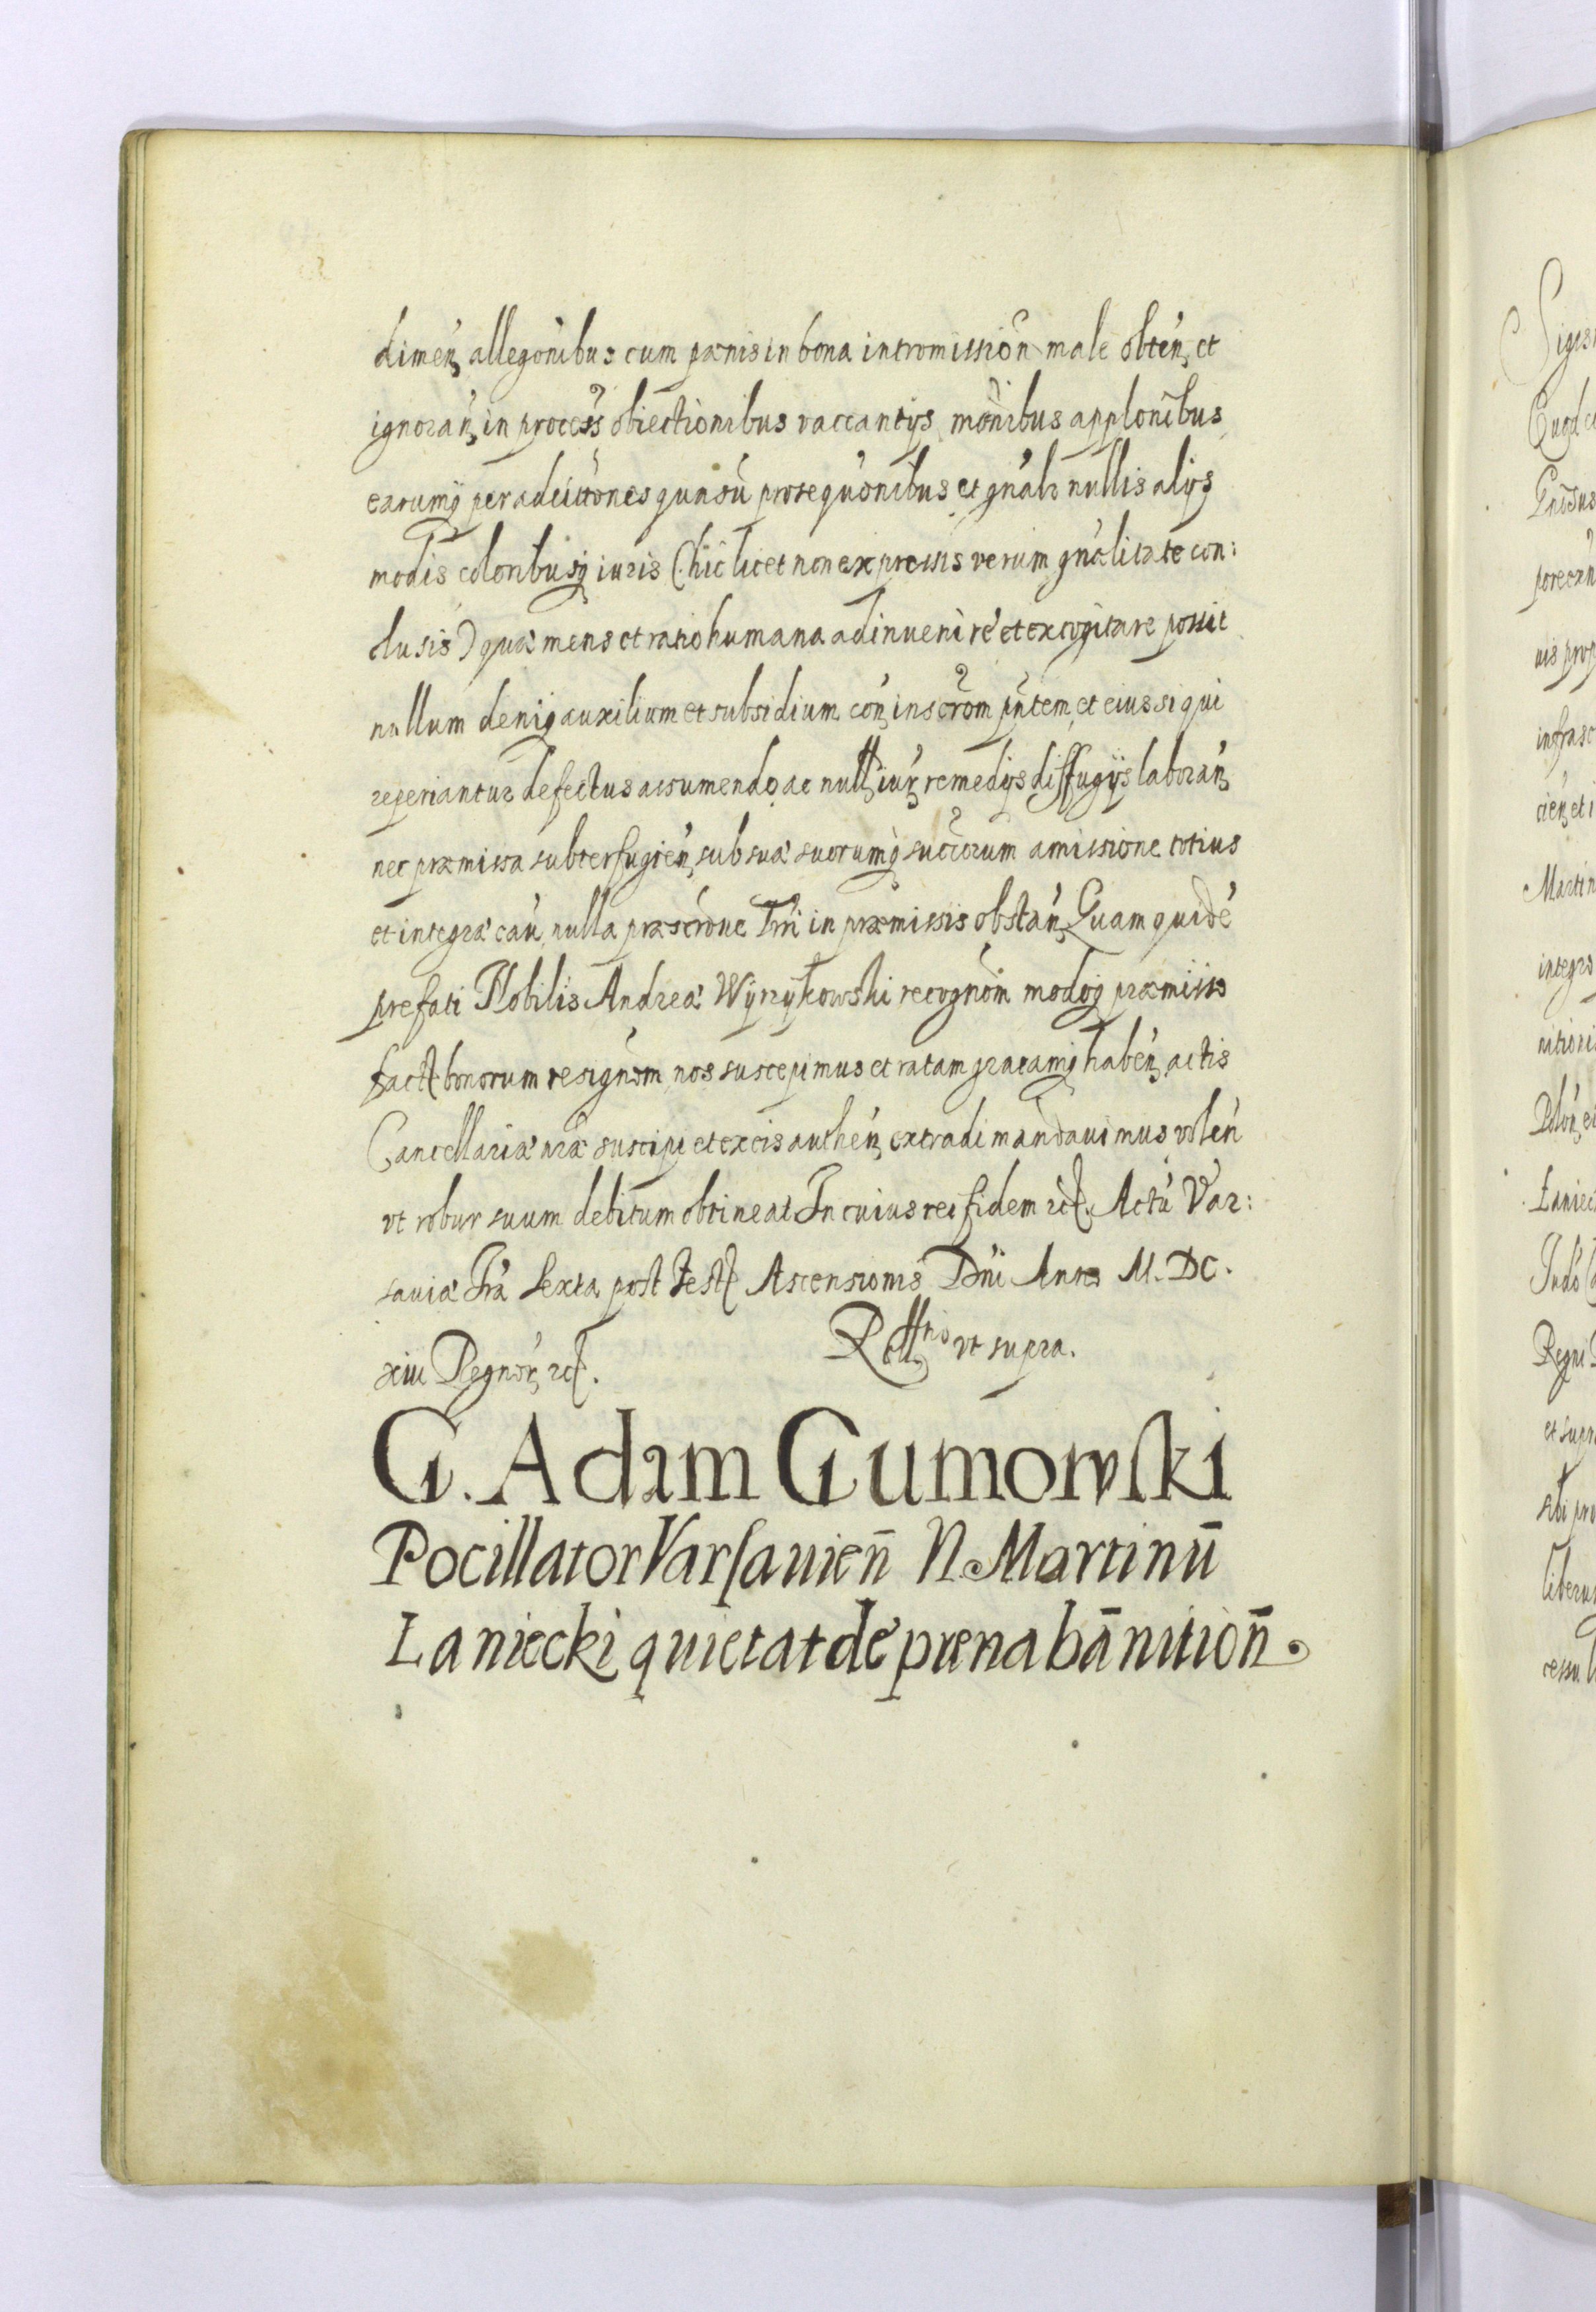 dimen, allegonibus cum pænis in bona intromission male obten, et
ignoran, in process obiectionibus vaccantijs monibus applonibus
earumq per adcittones prosequonibus et gnalr nullis alijs
modis coloribusq iuris (hic licet non expressis verum gnalitate con:
clusis) quæ mens et ratio humana adinuenire et excogitare possit
nullum deniq auxilium et subsidium con, inscrom pntem et eius si qui
reperiantur defectus assumendo ac null, iur, remedijs diffugijs laboran,
nec præmissa subterfugien, sub suæ suorumq succorum amissione totius
et integræ cau, nulla præscrone Trri in præmissis obstan, Quam quidē
prefati Nobilis Andreæ Wyrzykowski recognom modoq præmisso
fact bonorum resignom nos suscepimus et ratam gratamq haben, actis
Cancellariæ nræ suscipi et ex eis authen, extradi mandauimus volen
vt robur suum debitum obtineat In cuius rei fidem etc. Actū Var:
sauiæ Fra Sexta post Fest Ascensionis Dni Anno M. DC.
xiii Regnor, etc. Rellatio vt supra.
G. Adam Gumowski
Pocillator Varsauien̄ N. Martinū
Laniecki quietat de pæna bānition̄.